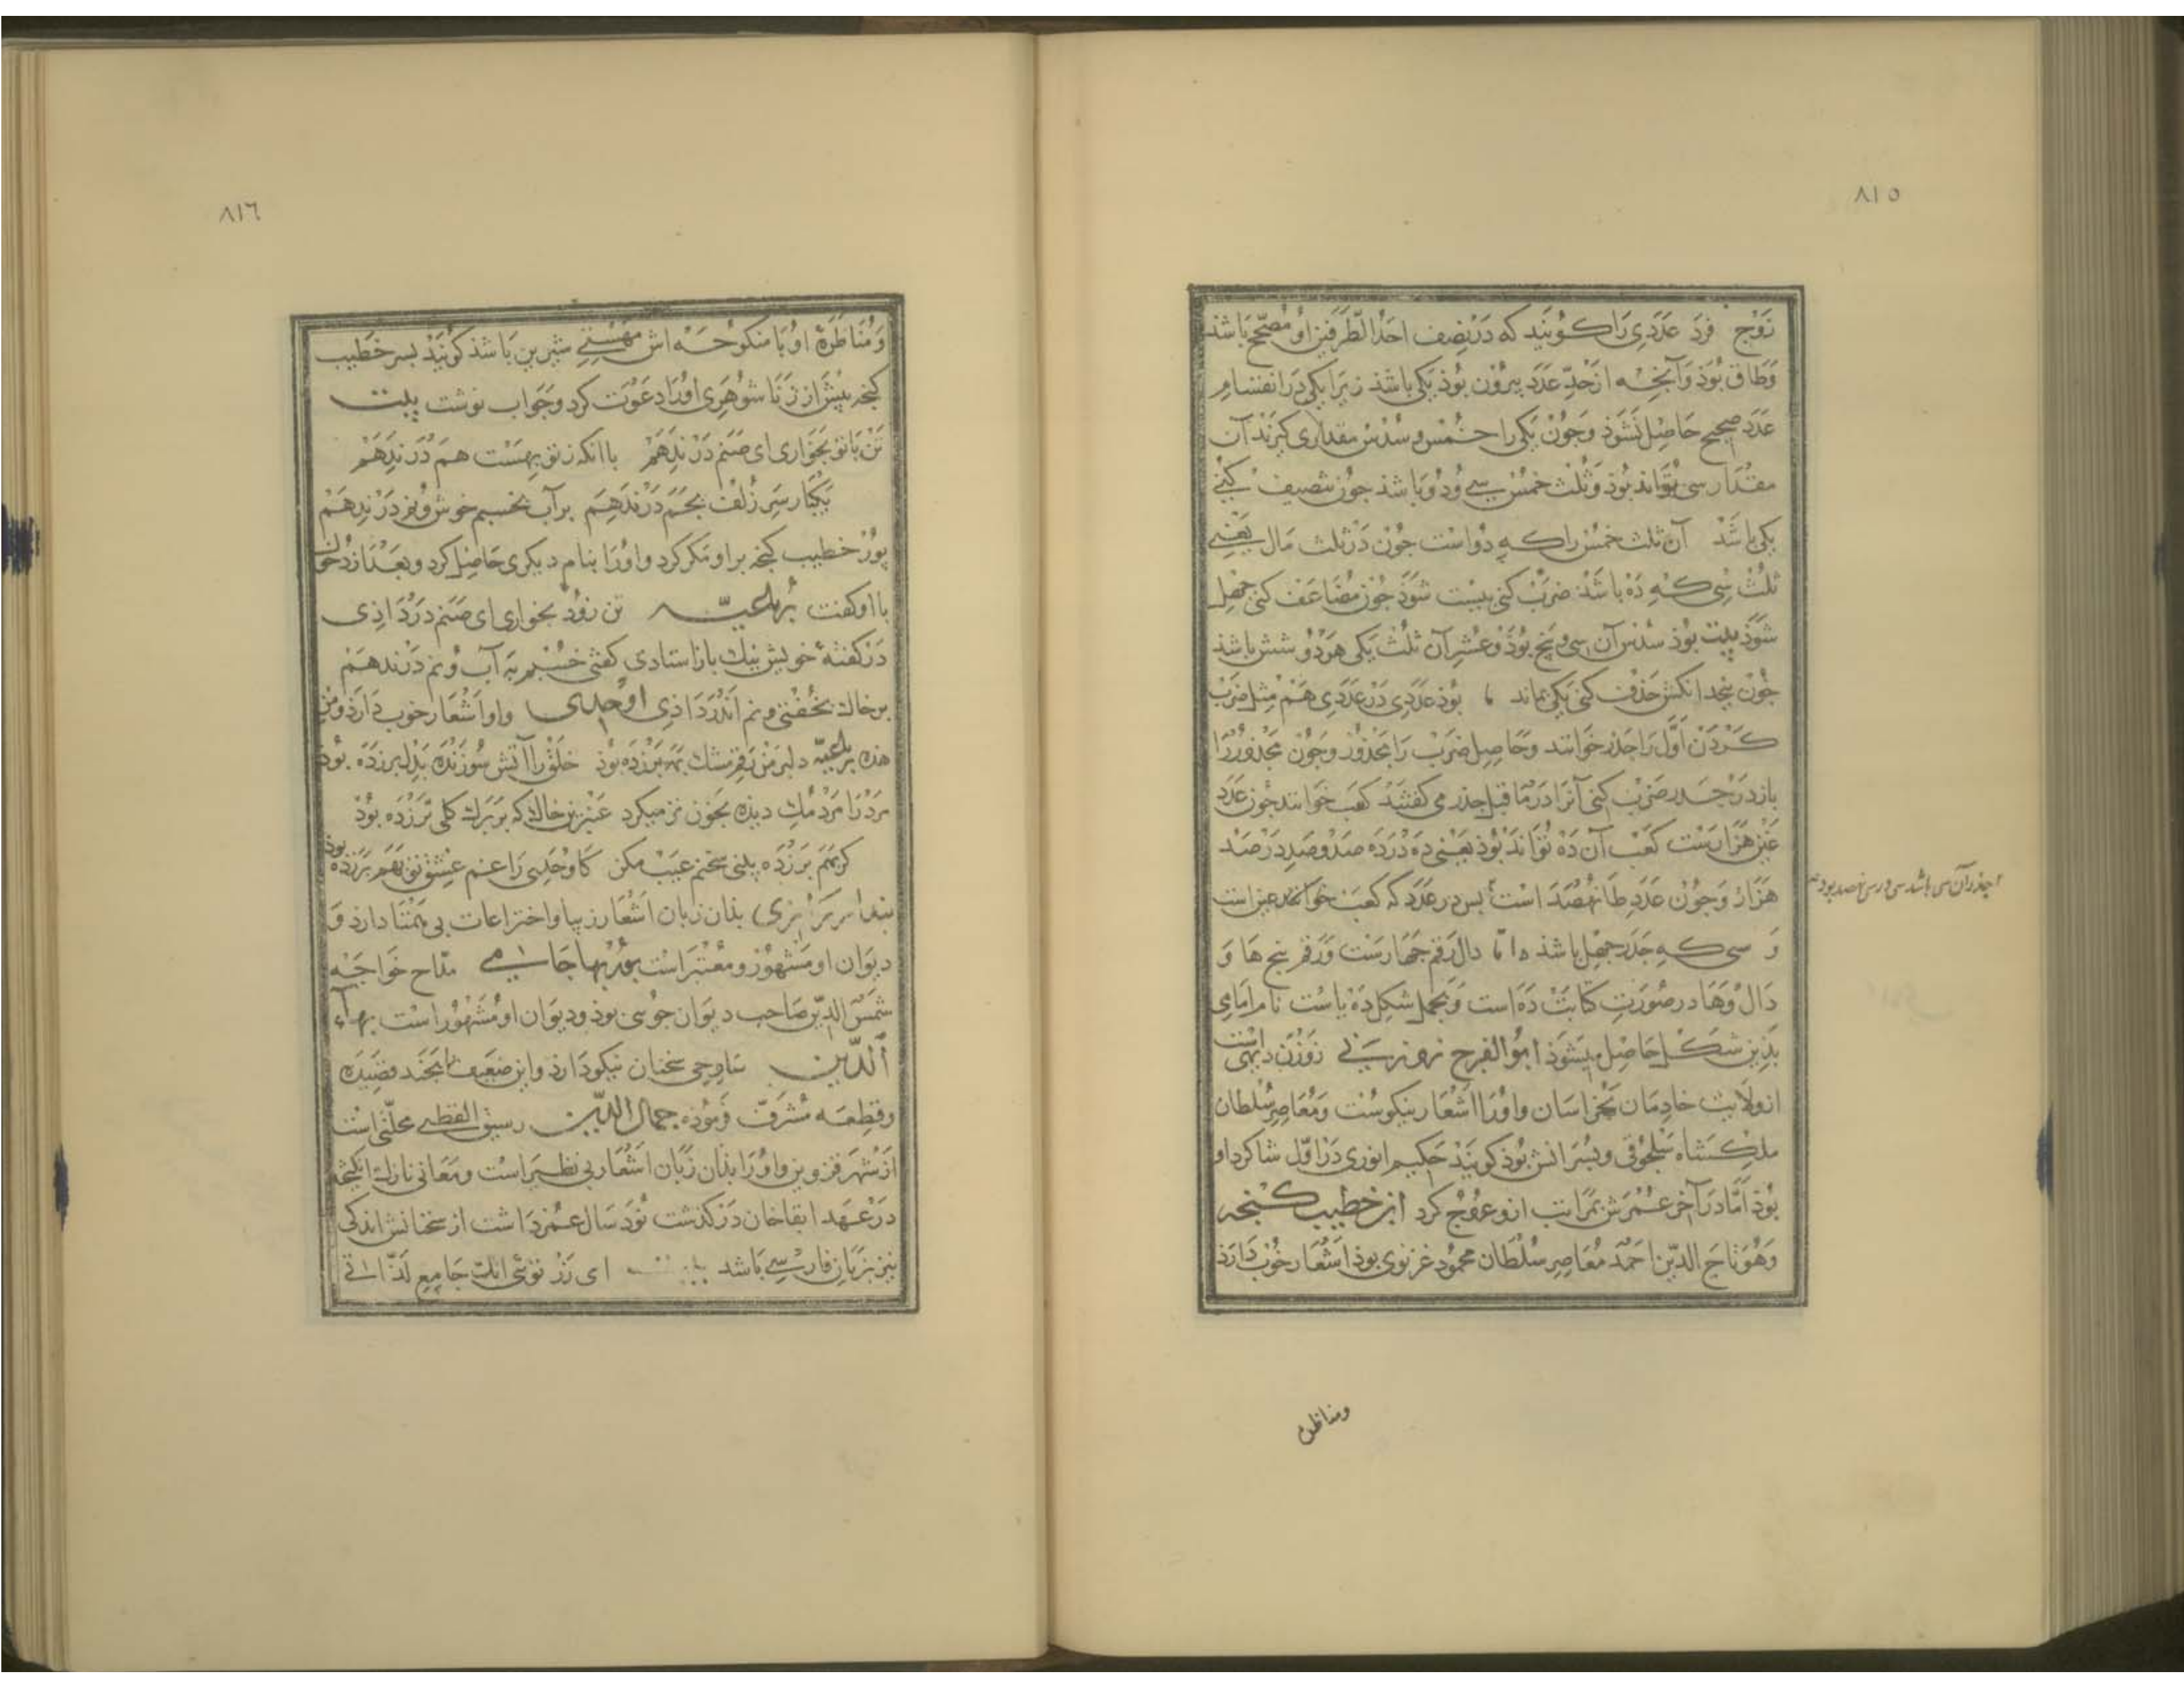 ٨١٥
زوج فرد عددی را کویند که در نصف احد الطرفین او مصحح باشد
و طاق بوذ و آنجه از حد عدد بیرون بوذ یکی باشذ زیرا یکی در انقسام
عدد صحیح حاصل نشوذ و جون یکی را خمس و سدس مقداری کیرند آن
مقدار سی تواند بوذ و ثلث خمس سی و دو باشذ جون تنصیف کنی
یکی باشذ آن ثلث خمس را که دو است جون در ثلث مال یعنی
ثلث سی که ده باشذ ضرب کنی بیست شوذ جون مضاعف کنی جهل
شوذ بیت بوذ سدس آن سی و پنج بوذ و عشر آن ثلث یکی هر دو شش باشد
جون پنجد انکش حذف کنی یکی بماند بوذ عددی در عددی هم مثل ضرب
کردن اول را جذر خوانند و حاصل ضرب را مجذور و جون مجذور را
باز در جذر ضرب کنی آنرا در ما قبل جذر می کفتند کعب خوانند جون عدد
غین هزارست کعب آن ده تواند بوذ یعنی ده در ده صد و صد در صد
هزار و جون عدد طا نهصد است پس در عدد که کعب خوانده غین است
و سی که جذر جهل باشذ اما دال رقم جهارست و رقم پنج ها و
دال و ها در صورت کتابت ده است و بجمل شکل ده یاست نام امامی
بذین شکل حاصل میشوذ ابو الفرج رونی زوزن دیهی است
از ولایت خادمان بخراسان و اورا اشعار نیکوست و معاصر سلطان
ملکشاه سلجوقی و پسرانش بوذ کویند حکیم انوری در اول شاکرد او
بوذ اما در آخر عمرش بمراتب ازو عروج کرد ابن خطیب کنجه
وهو تاج الدین احمد معاصر سلطان محمود غزنوی بوذ اشعار خوب دارذ
جذر آن سی باشد سی در سی نهصد بود
ومناظره
٨١٦
و مناظره او با منکوحه اش مهستی شیرین باشذ کویند پسر خطیب
کنجه پیش از زناشوهری اورا دعوت کرد و جواب نوشت بیت
تن با تو بخواری ای صنم در ندهم با انکه ز تو بهست هم در ندهم
یکبار سر زلف بخم در ندهم بر آب بخسبم خوش و نم در ندهم
پور خطیب کنجه بر او مکر کرد و اورا بنام دیکری حاصل کرد و بعد از دخول
با او کفت رباعیه تن زود بخواری ای صنم در داذی
در کفته خویش نیک باز استادی کفتی خسبم به آب و نم در ندهم
بر خاک بخفتی و نم اندر داذی اوحدی و او اشعار خوب دارذ و من
هذه رباعیه دلبر من رقم مشک بمه برزده بوذ خلق را آتش سوزنده بدل برزده بوذ
مرد را مردمک دیده بخون تر میکرد عنبرین خالک که بر برک کلی برزده بوذ
کر بهم برزده بینی سخنم عیب مکن کاوحدی را غم عشق تو بهم برزده بوذ
بندار رازی بذان زبان اشعار زیبا و اختراعات بی همتا دارذ و
دیوان او مشهور و معتبر است پور بها جامی مداح خواجه
شمس الدین صاحب دیوان جوینی بوذ و دیوان او مشهور است بهاء
الدین ساوجی سخنان نیکو دارذ و این ضعیف را بجند قصیده
و قطعه مشرف فرموذه جمال الدین رستق القطنی محلتی است
از شهر قزوین و اورا بذان زبان اشعار بی نظیر است و معانی نازک انکیخته
در عهد ابقاخان در کذشت نود سال عمر داشت از سخنانش اندکی
نیز بزبان فارسی باشد ای رز توئی انک جامع لذاتی